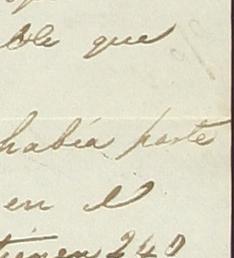 ble que
había parte
en el
tienen 240